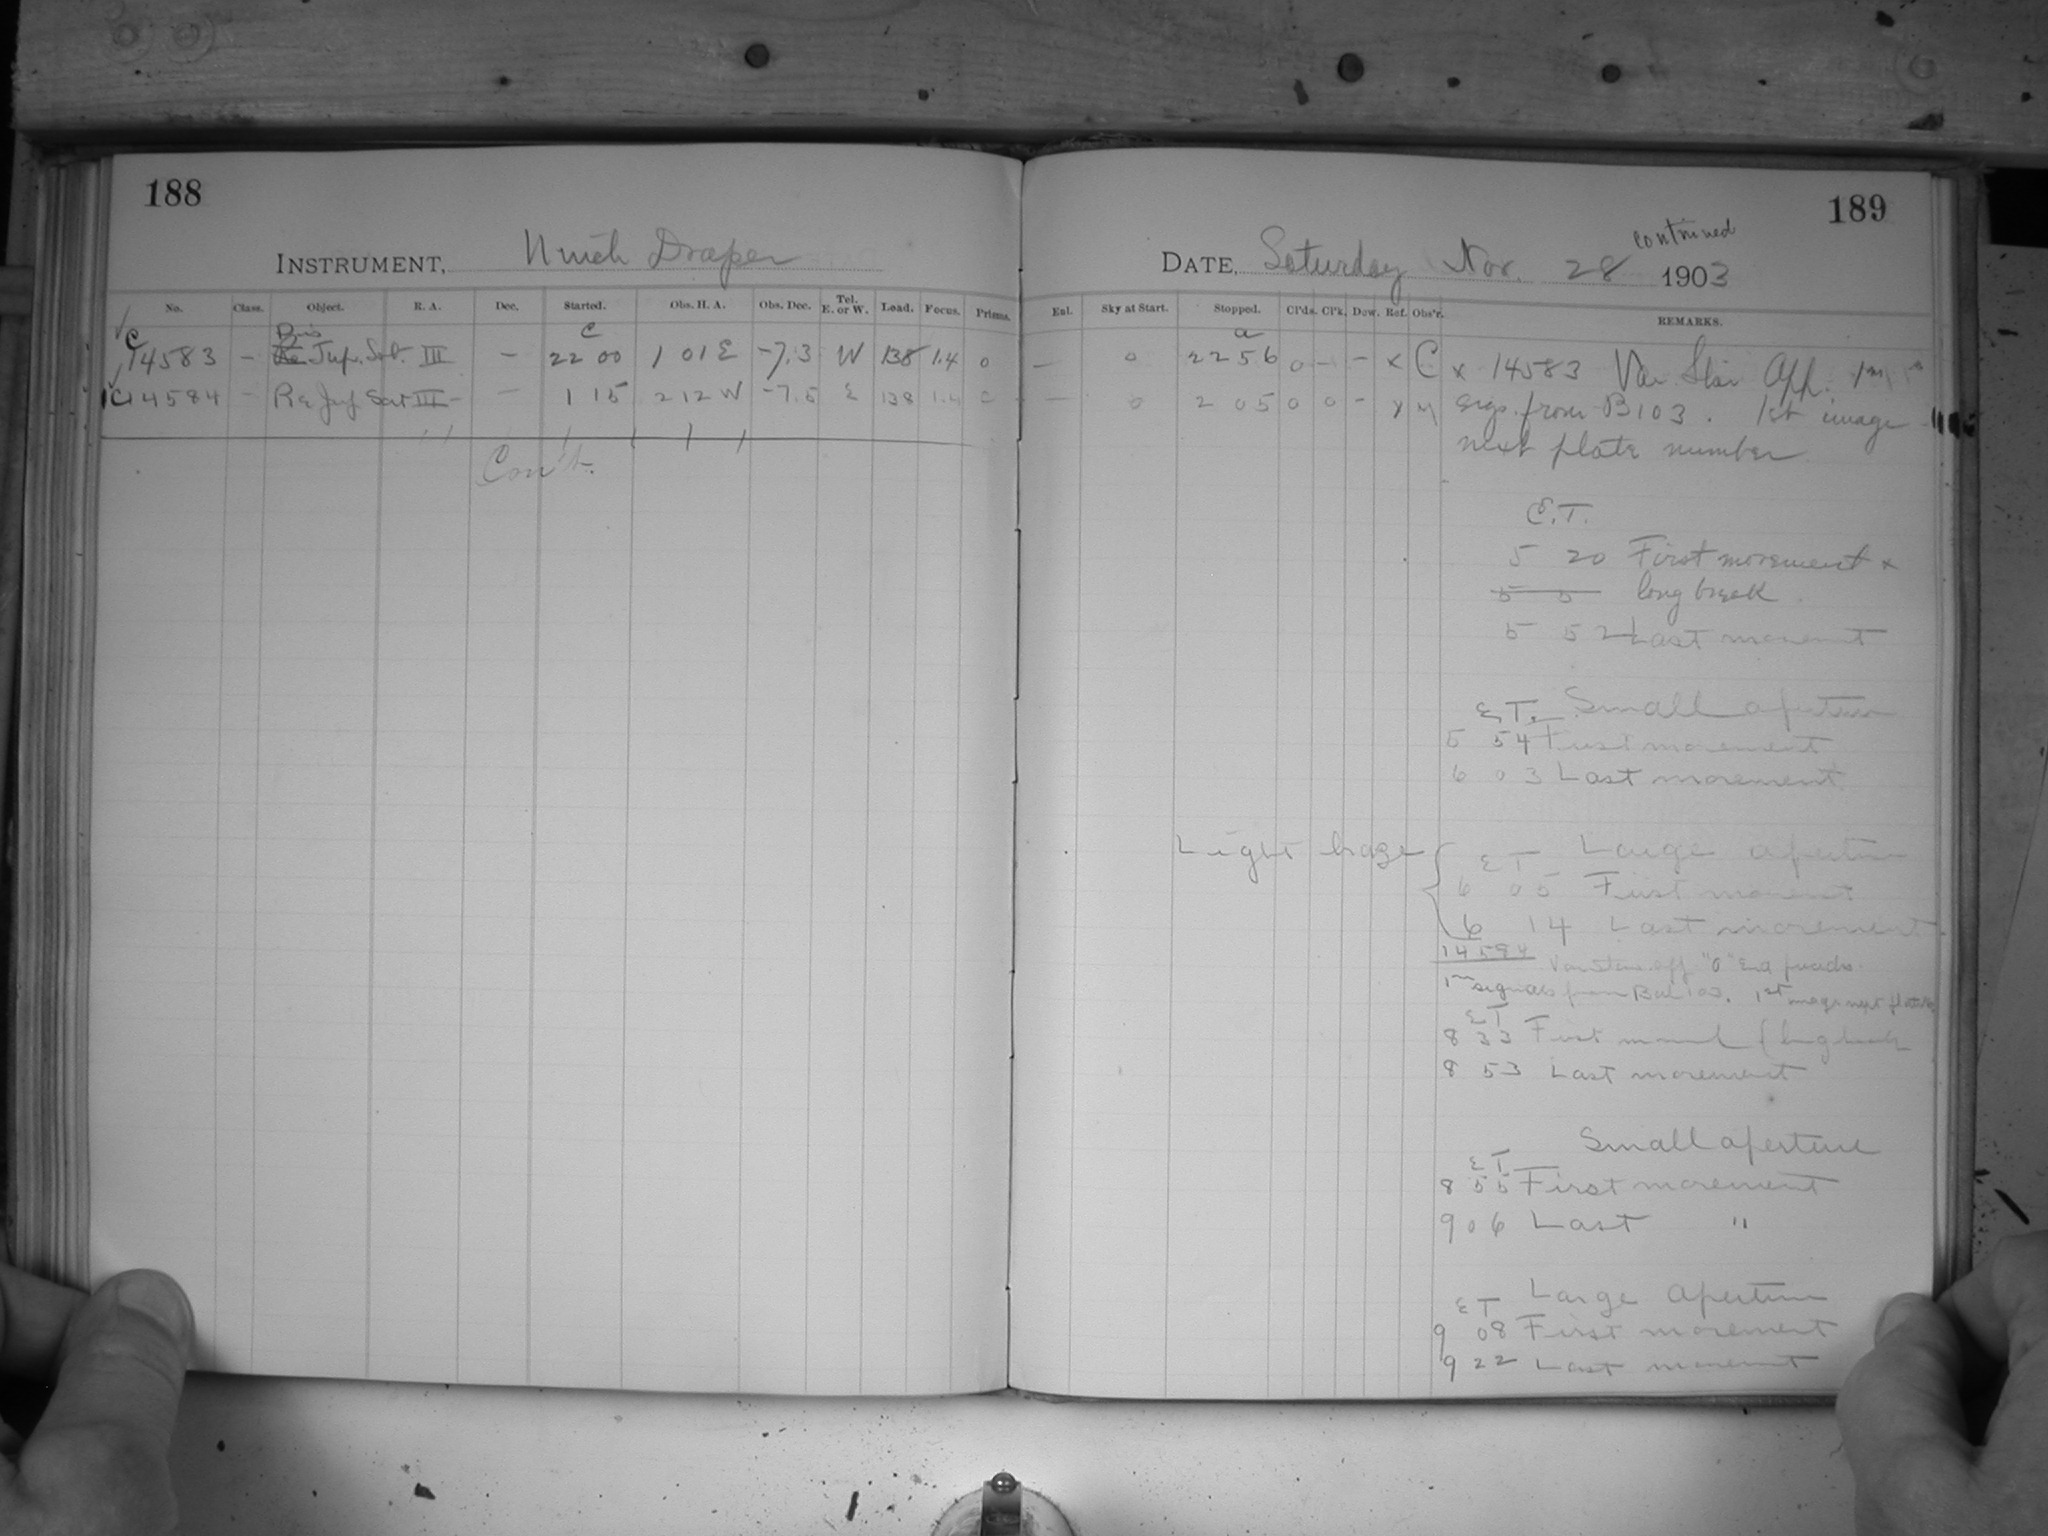 188
INSTRUMENT, 11 inch Draper
No. Class. Object. R. A. Dec. Started. Obs. H. A. Obs. Dec. Tel. E. or W. Load. Focus. Prisms.
Dis C
C 14583 – Re Jup. Sat. III – 22 00 1 01 E -7.3 W 138 1.4 0
C 14584 – Re Jup Sat III – – 1 15 2 12 W -7.5 E 138 1.4 0
Con't.
189
continued
DATE, Saturday Nov. 28 1903
Enl. Sky at Start. Stopped. Cl'ds. Cl'k. Dew. Ref. Obs'r. REMARKS.
a
— 0 22 56 0 – – x C x 14583 Var Star App. 1m
— 0 2 05 0 0 – x M sigs. from B 103. 1st image
next plate number
E.T.
5 20 First movement x
5 5 long break
5 52 Last movement
E.T. Small aperture
5 54 First movement
6 03 Last movement
Light haze { E T Large aperture
6 05 First movement
6 14 Last movement
14584 Var Star app "0"
1m signals from Bul 103. 1st image next plate
E T
8 33 First movement (long break
8 53 Last movement
Small aperture
E T
8 55 First movement
9 06 Last "
Large Aperture
E T
9 08 First movement
9 22 Last movement